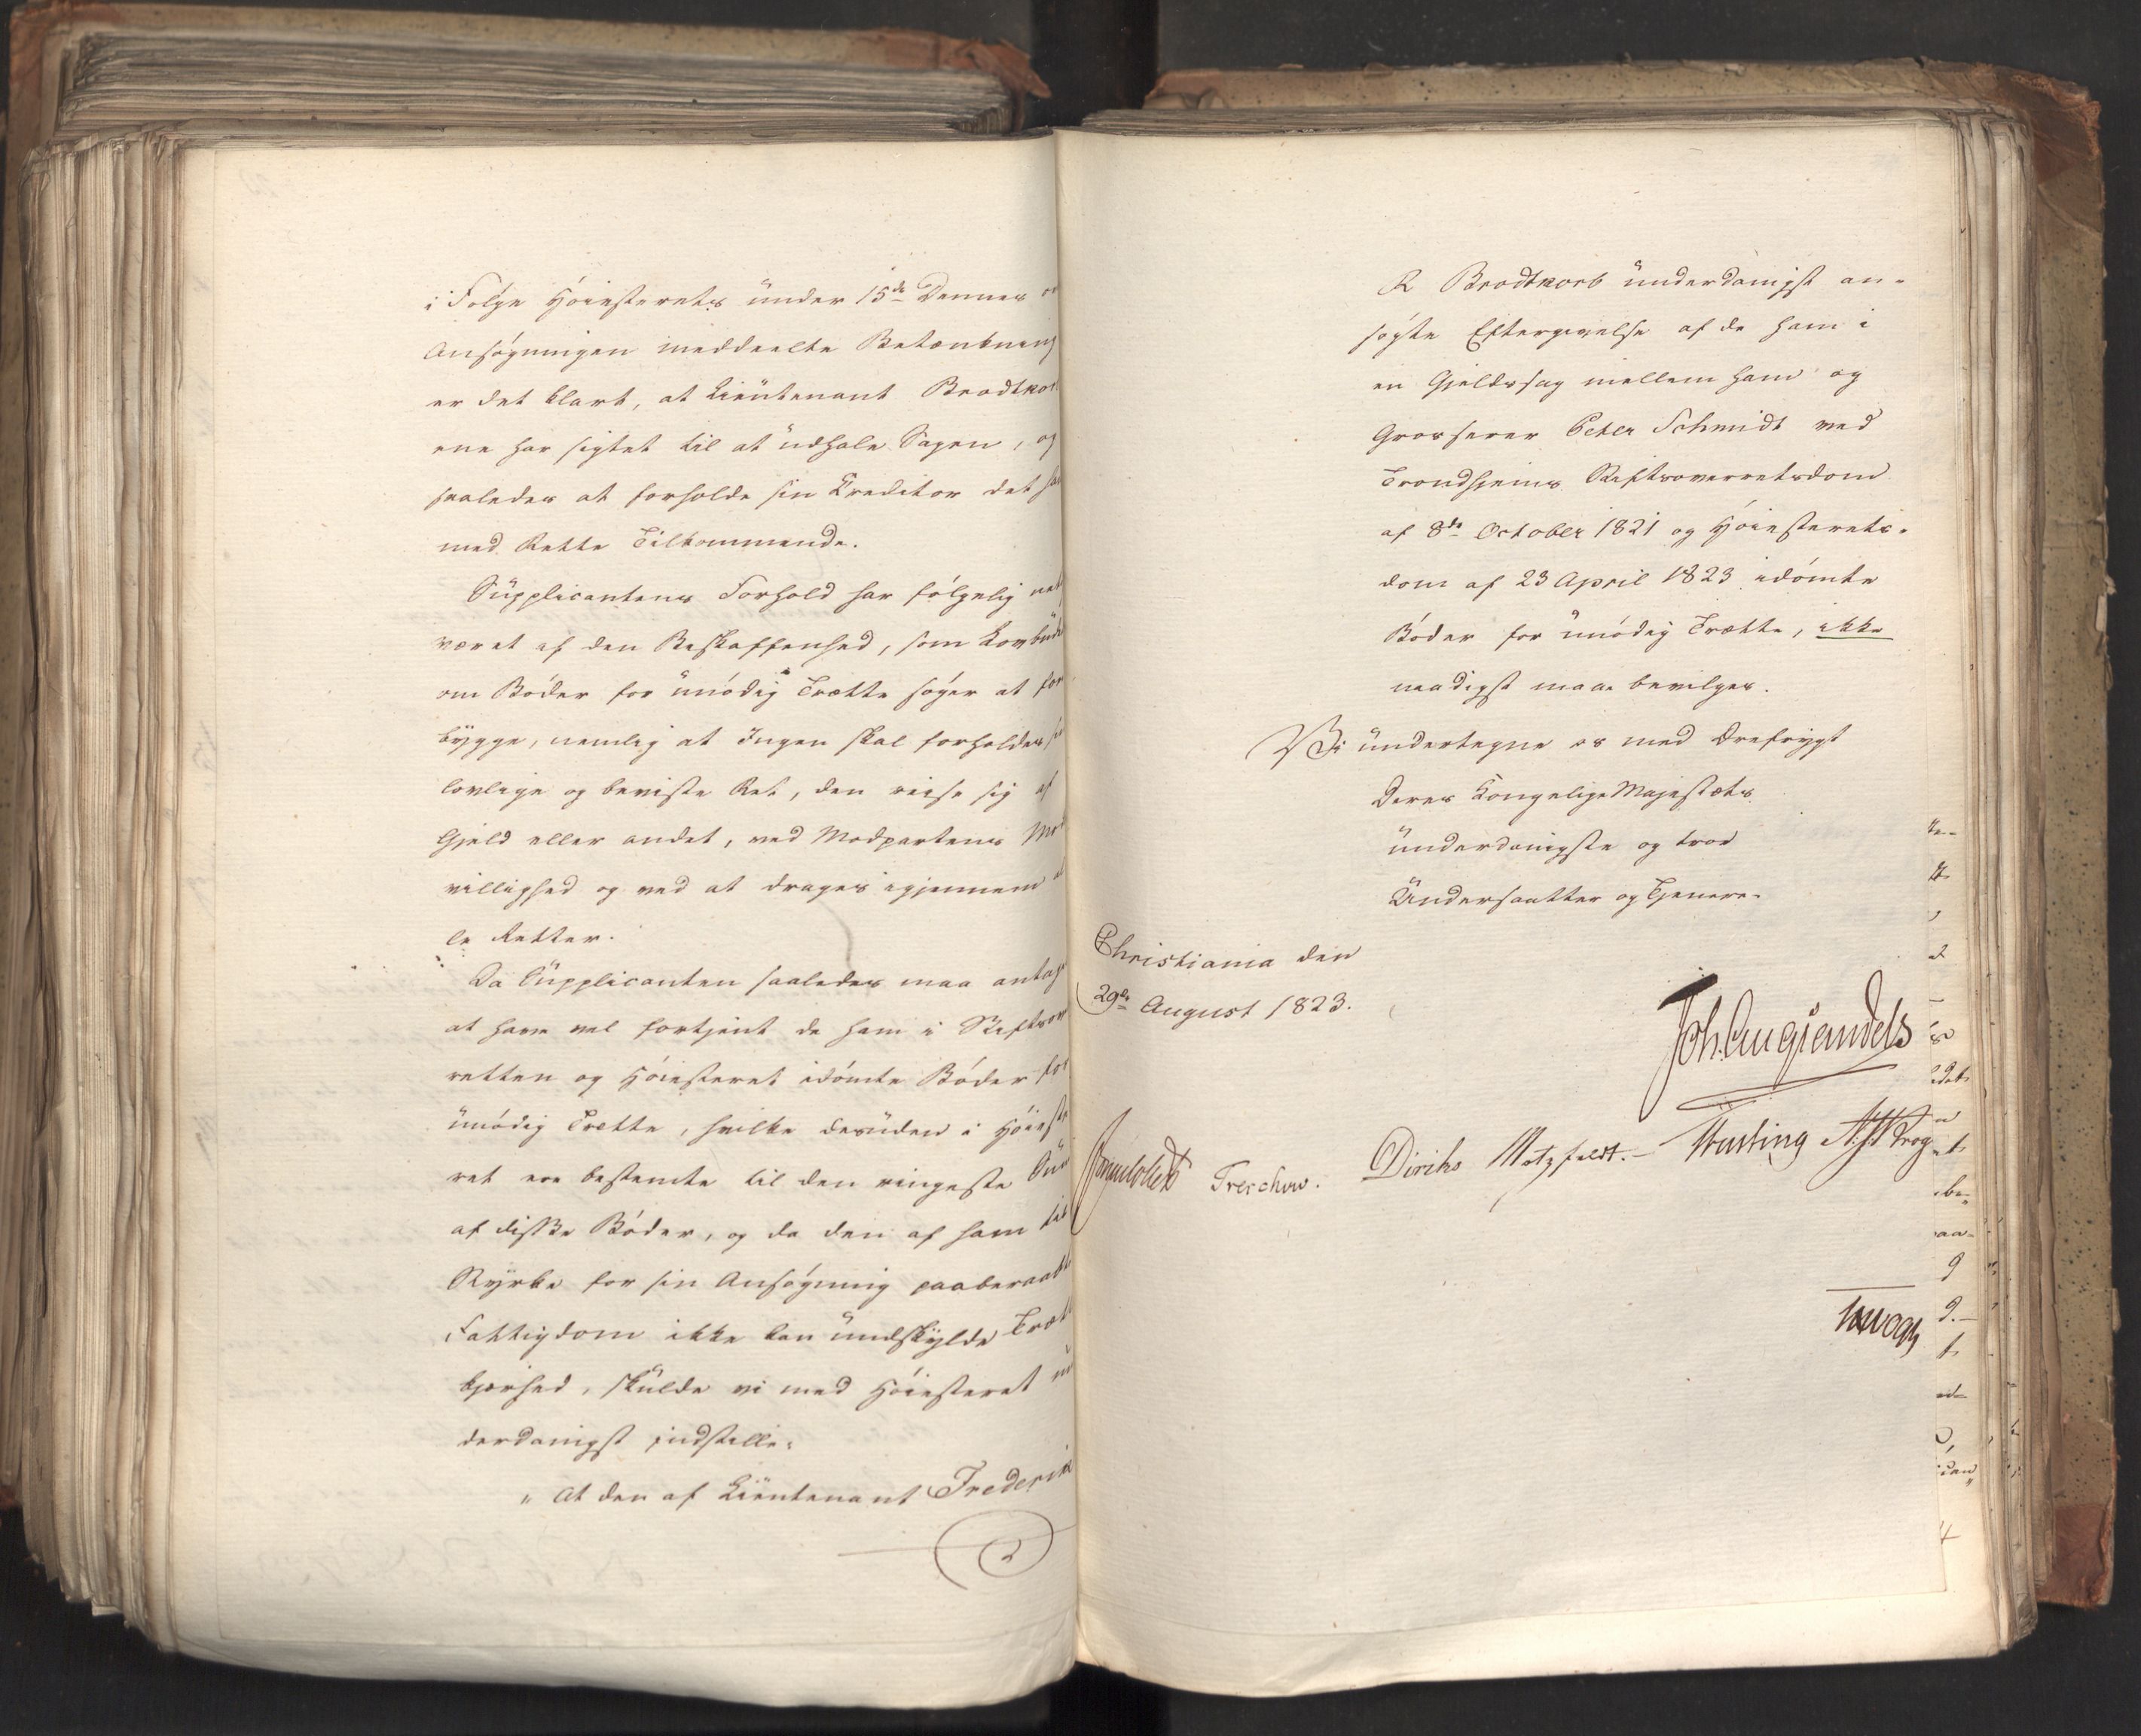 i Følge Høiesterets under 15de Dennes
Ansøgningen meddeelte Betænkning
er det klart, at Lieutenant Brodtkor
ene har sigtet til at udhale Sagen, og
saaledes at forholde sin Creditor det
med Rette Tilkommende.
Supplicantens Forhold har følgelig
været af den Beskaffenhed, som Lovbude
om Bøder for unødig Trætte søger at for
bygge, nemlig at Ingen skal forholdes
lovlige og beviste Ret, den reise sig af
Gjeld eller andet, ved Modpartens Mod
villighed og ved at drages igjennem al
le Retter.
Da Supplicanten saaledes maa antag
at have vel fortjent de ham i Stiftsov
retten og Høiesteret idømte Bøder for
unødig Trette, hvilke desuden i Høieste
ret ere bestemte til den ringeste Sum
af disse Bøder, og da den af ham til
Styrke for sin Ansøgning paaberaabte
Fattigdom ikke kan undskylde Træt
kjerhed, skulde vi med Høiesteret un
derdanigst indstille:
" At den af Lieutenant Frederik
R Brodtkorb underdanigst an-
søgte Eftergivelse af de ham i
en Gjeldssag mellem ham og
Grosserer Peter Schmidt ved
Trondhjems Stiftsoverretsdom
af 8de October 1821 og Høiesterets-
dom af 23 April 1823 idømte
Bøder for unødig Trætte, ikke
naadigst maae bevilges.
Vi undertegne os med Ærefrygt
Deres Kongelige Majestæts
underdanigste og troe
Undersaatter og Tjenere.
Christiania den
29de August 1823.
Joh. Aug Sandels
Sommerhielm Treschow. Diriks Motzfeldt. Fasting